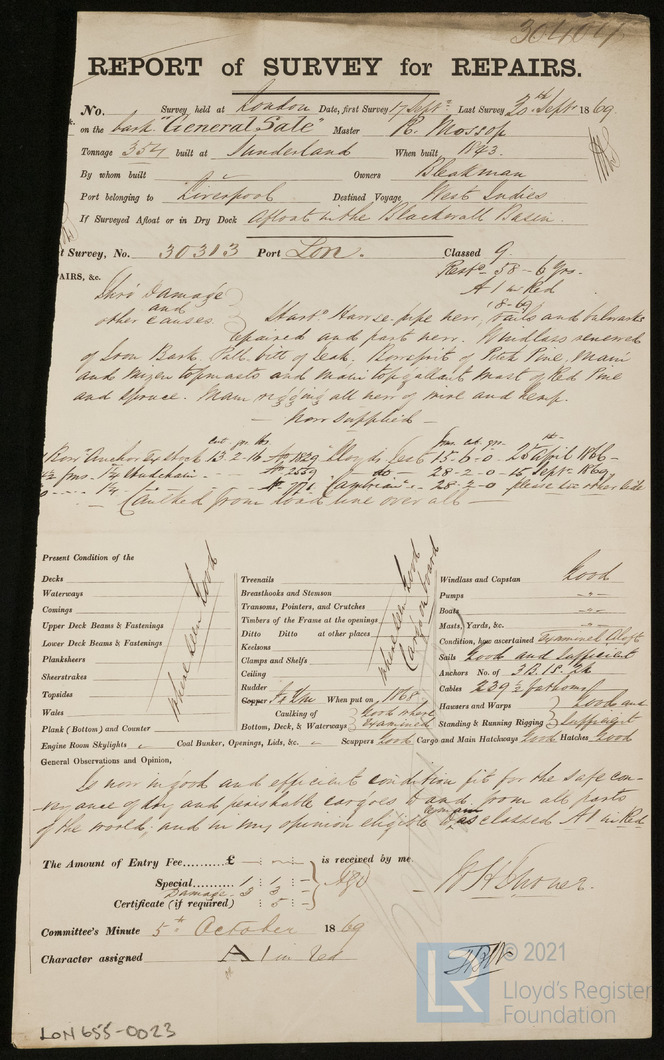 30404
REPORT of SURVEY for REPAIRS.
No. Survey held at London Date, first Survey 17 Septr. Last Survey 30th Septr. 1869
on the bark "General Sale" Master R. Mossop
Tonnage 354 built at Sunderland When built 1843.
By whom built Owners Bleakman
Port belonging to Liverpool Destined Voyage West Indies
If Surveyed Afloat or in Dry Dock Afloat in the Blackwall Basin.
t Survey, No. 30313 Port Lon. Classed 9.
Restd. 58 - 6 Yrs.
AIRS, &c. A 1 in Red
Thro' Damage 8-69
and
other causes. Starbd. Hawse pipe new, rails and bulwarks
repaired and part new. Windlass renewed
of Iron Bark. Pall bitt of Teak, Bowsprit of Pitch Pine, Main
and Mizen topmasts and main topgallant mast of Red Pine
and Spruce. Main rigging all new of wire and hemp.
— Now supplied —
Cwt. qr. lbs.
Bow Anchor Ex Stock 13-2-16 No. 1829 Lloyds Test 15-6-0 - 25th April 1866-
fms. 1¼ Studchain - do - 28-2-0 - 15 Septr. 1869
28-2-0 please see other side
— Caulked from load line over all —
Present Condition of the
Decks
Waterways
Comings
Upper Deck Beams & Fastenings
Lower Deck Beams & Fastenings
Planksheers
Sheerstrakes
Topsides
Wales
Plank (Bottom) and Counter
where seen Good
Treenails
Breasthooks and Stemson
Transoms, Pointers, and Crutches
Timbers of the Frame at the openings
Ditto Ditto at other places
Keelsons
Clamps and Shelfs
Ceiling
Rudder
where seen Good
Cargo on board
Copper When put on 1868
Caulking of Good where
Bottom, Deck, & Waterways examined
Windlass and Capstan Good
Pumps -"-
Boats -"-
Masts, Yards, &c. -"-
Condition, how ascertained Examined Aloft
Sails Good and Sufficient
Anchors No. of 3B. 1S. 2K
Cables 239½ fathoms
Hausers and Warps Good and
Standing & Running Rigging Sufficient
Engine Room Skylights " Coal Bunker, Openings, Lids, &c. " Scuppers Good Cargo and Main Hatchways Good Hatches Good
General Observations and Opinion,
Is now in good and efficient condition fit for the safe con-
veyance of dry and perishable cargoes to and from all parts
of the world, and in my opinion eligible classed A1 in Red
The Amount of Entry Fee......... £ - : - : - is received by me
Special......... 1 : 1 : -
Damage 3 : 3 : -
Certificate (if required) : 5 : -
Committee's Minute 5th October 1869
Character assigned A 1 in Red
LR
© 2021
Lloyd's Register
Foundation
LON 655-0023